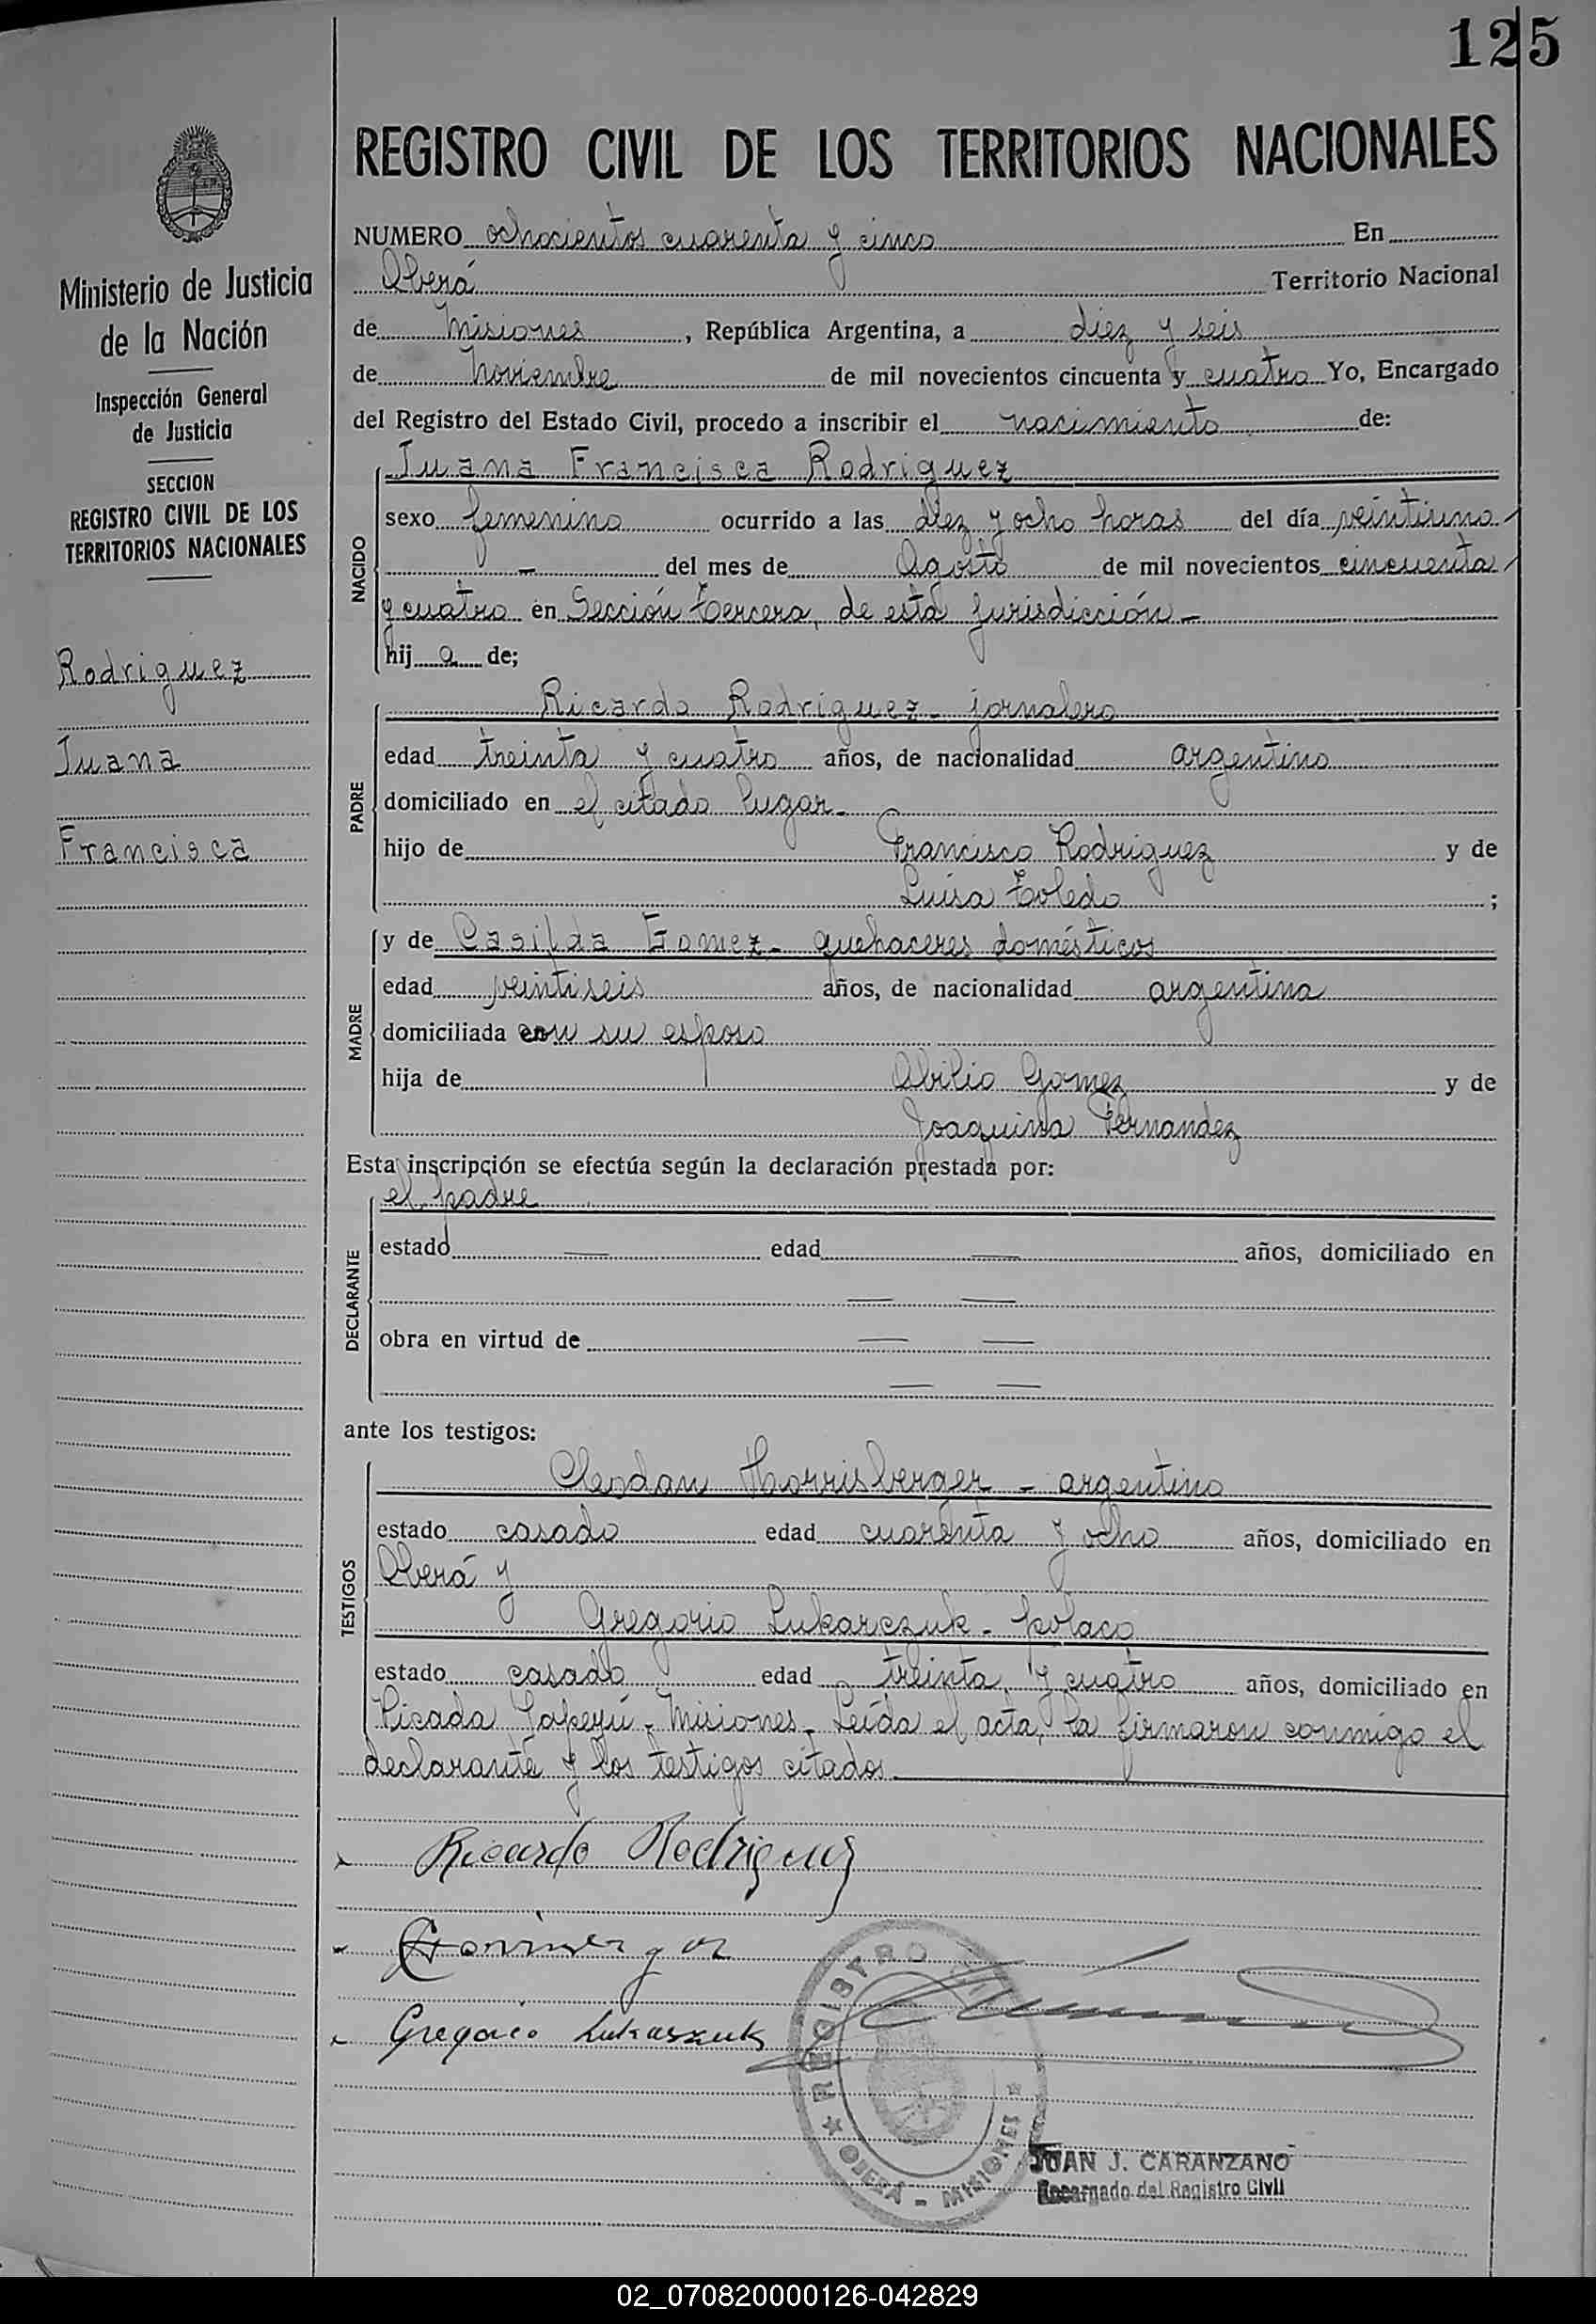 125
REGISTRO CIVIL DE LOS TERRITORIOS NACIONALES
Ministerio de Justicia
de la Nación
Inspección General
de Justicia
SECCION
REGISTRO CIVIL DE LOS
TERRITORIOS NACIONALES
Rodriguez
Juana
Francisca
NUMERO ochocientos cuarenta y cinco En
Oberá Territorio Nacional
de Misiones, República Argentina, a diez y seis
de Noviembre de mil novecientos cincuenta y cuatro Yo, Encargado
del Registro del Estado Civil, procedo a inscribir el nacimiento de:
NACIDO
Juana Francisca Rodriguez
sexo femenino ocurrido a las diez y ocho horas del día veintiuno
- del mes de Agosto de mil novecientos cincuenta
y cuatro en Sección tercera, de esta jurisdicción -
hija de;
PADRE
Ricardo Rodriguez - jornalero
edad treinta y cuatro años, de nacionalidad argentino
domiciliado en el citado lugar -
hijo de Francisco Rodriguez y de
Luisa Toledo ;
MADRE
y de Casilda Gomez - quehaceres domésticos
edad veintiseis años, de nacionalidad argentina
domiciliada con su esposo
hija de Abilio Gomez y de
Joaquina Fernandez
Esta inscripción se efectúa según la declaración prestada por:
DECLARANTE
el padre
estado — edad — años, domiciliado en
— —
obra en virtud de — —
— —
ante los testigos:
TESTIGOS
Cleodan - argentino
estado casado edad cuarenta y ocho años, domiciliado en
Oberá y
Gregorio Lukarczuk - polaco
estado casado edad treinta y cuatro años, domiciliado en
Picada Yapeyú - Misiones - Leída el acta, la firmaron conmigo el
declarante y los testigos citados
Ricardo Rodriguez
Gregorio Lukaszuk
REGISTRO
OBERÁ - MISIONES
JUAN J. CARANZANO
Encargado del Registro Civil
02_070820000126-042829